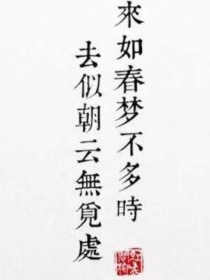 來如春梦不多時
去似朝云無覓處